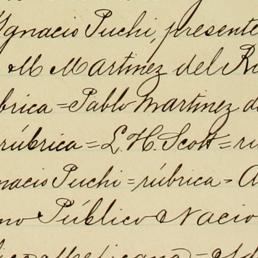 Ignacio Puchi, presente
M Martinez del R
brica = Pablo Martinez d
rúbrica = L. H. Scott = ru
nacio Puchi = rúbrica = A
no Público Nacio